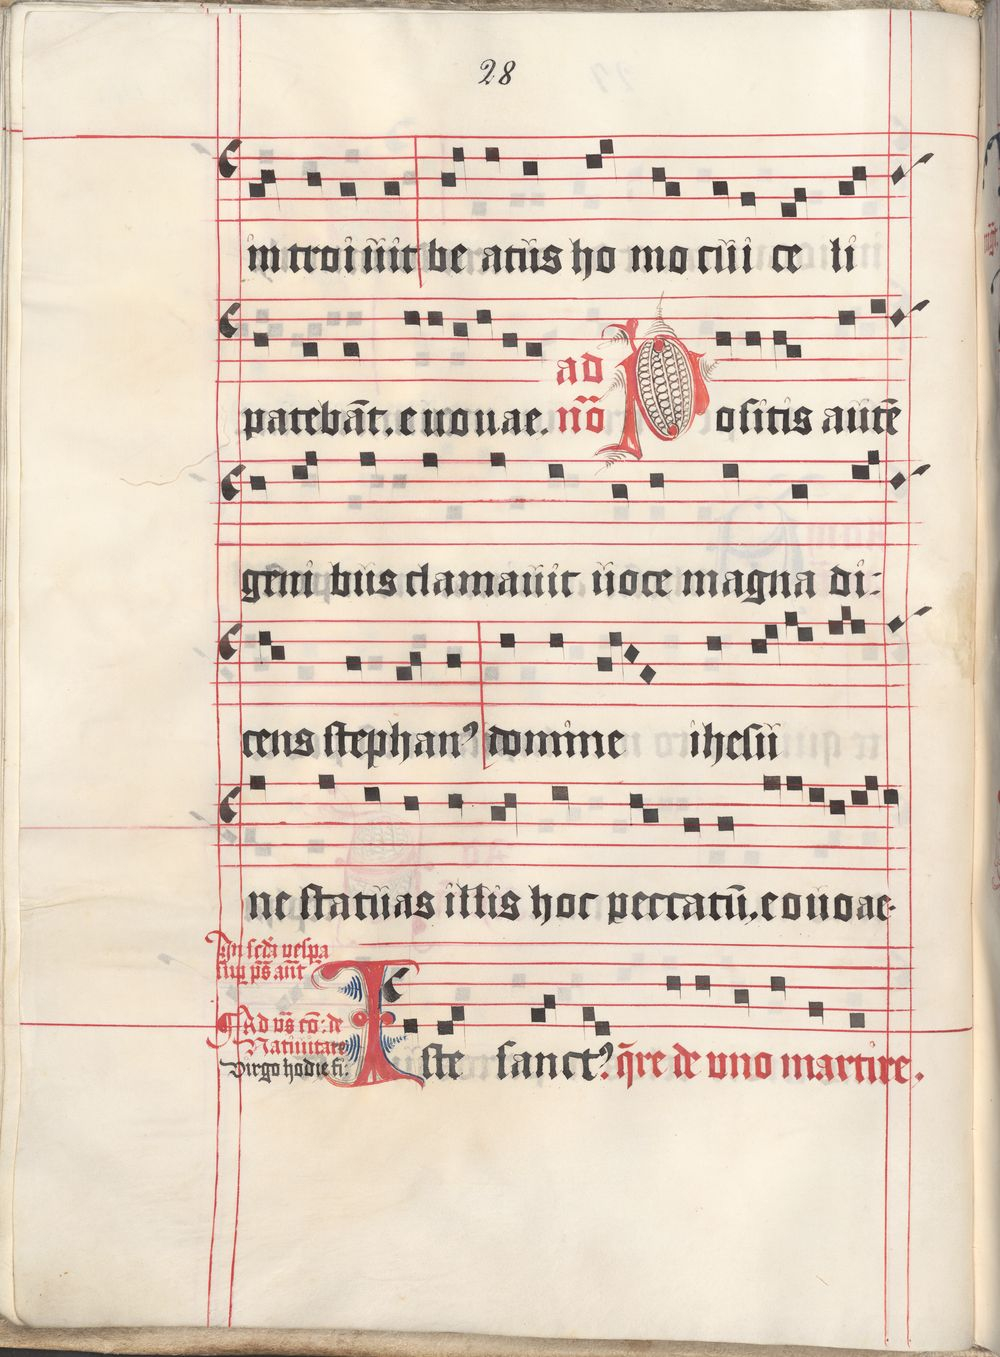 28
introiuit be atus ho mo cui ce li
patebāt. e uouae. ad nō Positis autē
geni bus clamauit uoce magna di:
cens stephanꝰ domine ihesu
ne statuas illis hoc peccatū. eouoae
In scḋa uespa
sup ps̄ ant̄
Ad us̄ cō: de
Natiuitate
Virgo hodie fi:
Iste sanctꝰ q̄re de uno martire.